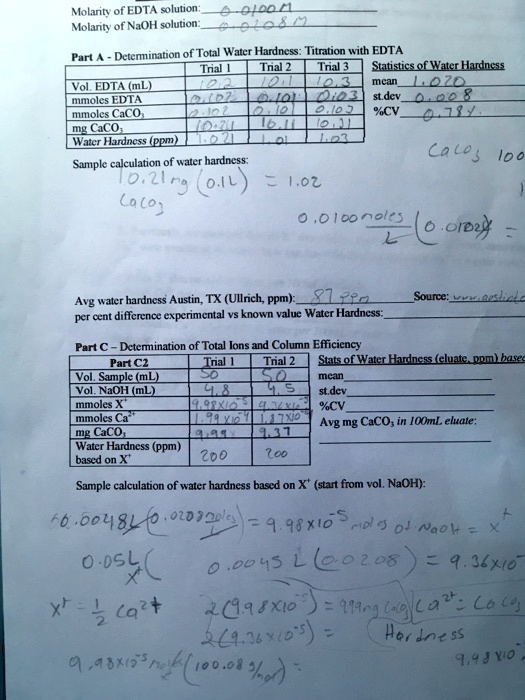 Molarity of EDTA solution: 0.0100M
Molarity of NaOH solution: 0.0208M
Part A - Determination of Total Water Hardness: Titration with EDTA
Trial 1 Trial 2 Trial 3 Statistics of Water Hardness
Vol. EDTA (mL) 10.2 10.1 10.3 mean 1.020
mmoles EDTA 0.102 0.101 0.103 st.dev 0.008
mmoles CaCO3 0.102 0.101 0.103 %CV 0.78%
mg CaCO3 10.21 10.11 10.31
Water Hardness (ppm) 1.021 1.01 1.03
CaCO3 100
Sample calculation of water hardness:
10.21mg (0.1L) = 1.02
CaCO3
0.0100 moles (0.0102 =
L
Avg water hardness Austin, TX (Ullrich, ppm): 87 ppm Source:
per cent difference experimental vs known value Water Hardness:
Part C – Determination of Total Ions and Column Efficiency
Part C2 Trial 1 Trial 2 Stats of Water Hardness (eluate, ppm) based
Vol. Sample (mL) 50 50 mean
Vol. NaOH (mL) 4.8 4.5 st.dev
mmoles X+ 9.98x10-5 %CV
mmoles Ca2+ Avg mg CaCO3 in 100mL eluate:
mg CaCO3 9.37
Water Hardness (ppm)
based on X+ 200 200
Sample calculation of water hardness based on X+ (start from vol. NaOH):
0.0048L (0.0208 moles/L) = 9.98x10-5 mols of NaOH = X+
0.05L 0.0045 L (0.0208) = 9.36x10-
X+
X+ = 1/2 Ca2+ 2(9.98x10-5) = Ca2+ = CaCO3
2(9.36x10-5) = Hardness
9.98x10-5 (100.08 g/mol) = 9.98x10-